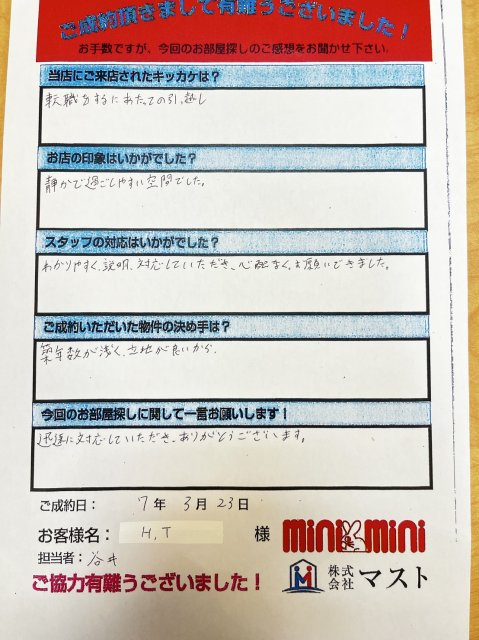 ご成約頂きまして有難うございました！
お手数ですが、今回のお部屋探しのご感想をお聞かせ下さい。
当店にご来店されたキッカケは？
転職をするにあたっての引っ越し
お店の印象はいかがでした？
静かで過ごしやすい空間でした。
スタッフの対応はいかがでした？
わかりやすく、説明、対応していただき、心配なく、お願いできました。
ご成約いただいた物件の決め手は？
築年数が浅く、立地が良いから、
今回のお部屋探しに関して一言お願いします！
迅速に対応していただき、ありがとうございます。
ご成約日： 7年 3月 23日
お客様名： H,T 様
担当者：谷井
ご協力有難うございました！
mini mini
株式会社 マスト